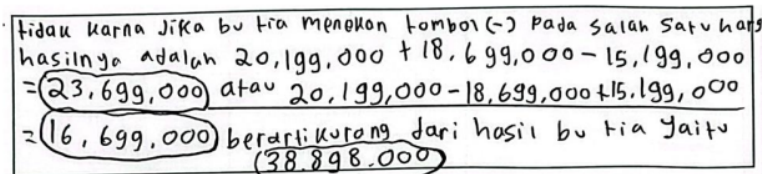 tidak karna Jika bu tia menekan tombol (-) Pada salah satu harg
hasilnya adalah 20,199,000 + 18,699,000 - 15,199,000
= 23,699,000 atau 20,199,000 - 18,699,000 + 15.199,000
= 16,699,000 berarti kurang dari hasil bu tia yaitu
38.898.000